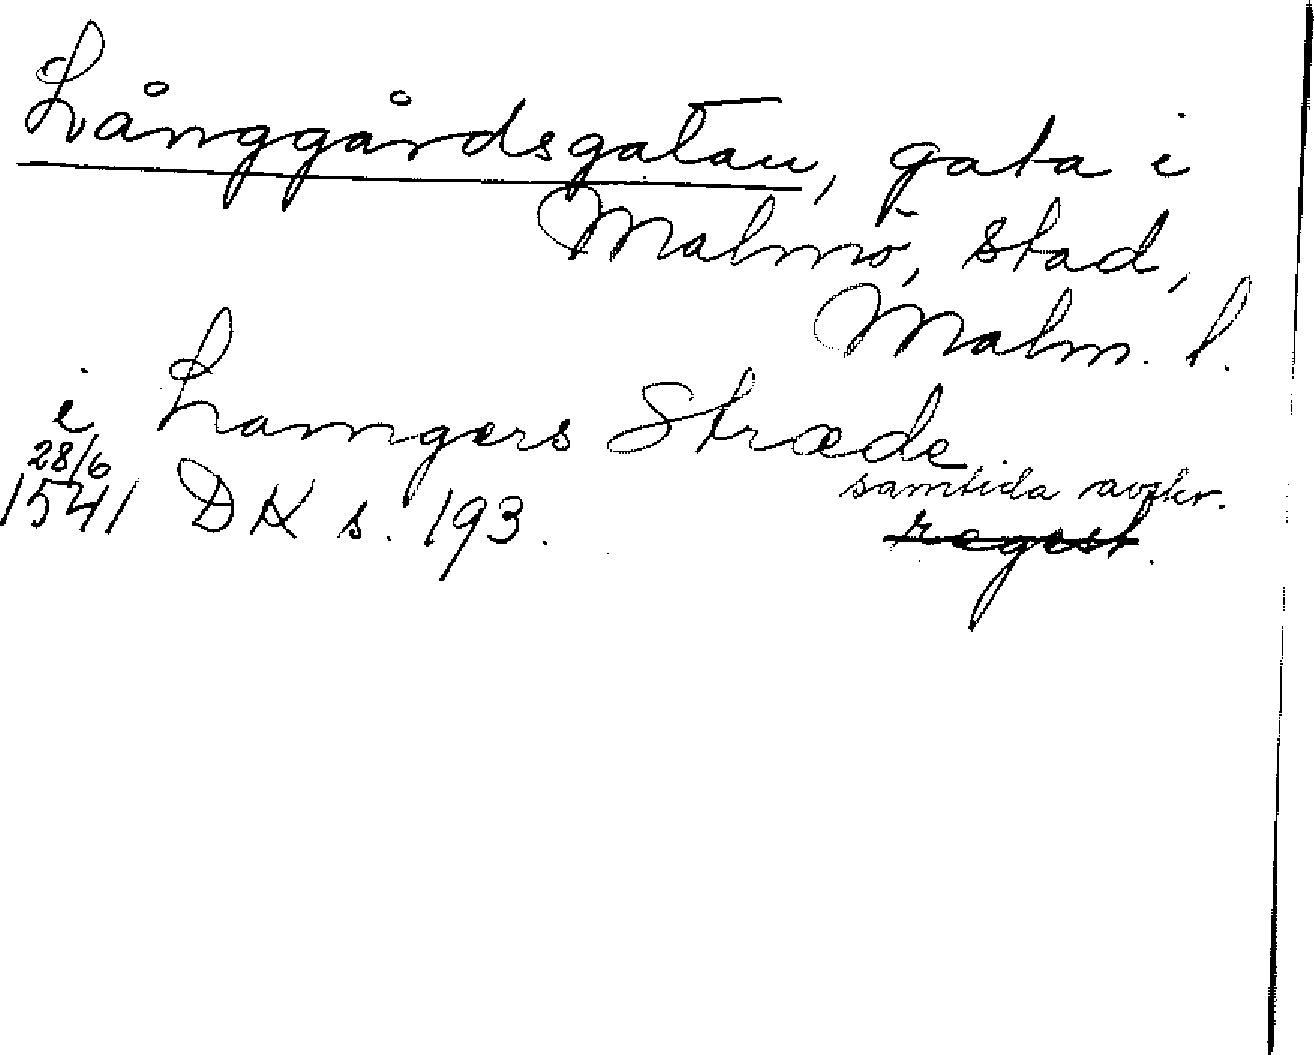 Långgårdsgatan, gata i
Malmö, stad,
Malm. l.
i Lamgers Stræde
28/6 samtida avskr.
1541 DK s. 193. regest.